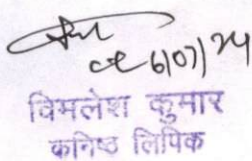 6/07/24
विमलेश कुमार
कनिष्ठ लिपिक